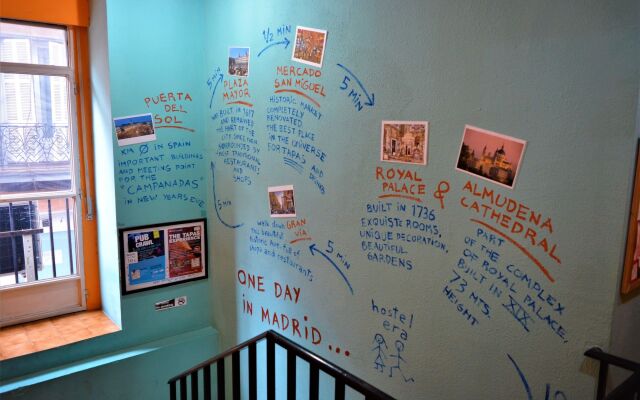 PUERTA
DEL
SOL
KM Ø IN SPAIN
IMPORTANT BUILDINGS
AND MEETING POINT
FOR THE
"CAMPANADAS"
IN NEW YEARS EVE
5 min
5 min
PLAZA
MAYOR
BUILT IN 1617
AND RENEWED
THE HEART OF THE
CITY SINCE THEN
SURROUNDED BY
TRADITIONAL
RESTAURANTS
AND
SHOPS
1/2 MIN
MERCADO
SAN MIGUEL
HISTORIC MARKET
COMPLETELY
RENOVATED.
THE BEST PLACE
IN THE UNIVERSE
FOR TAPAS
AND
DRINKS
5 MIN
WALK DOWN GRAN
VÍA
this beautiful
historic Ave. full of
shops and restaurants
5 MIN
ROYAL
PALACE
&
ALMUDENA
CATHEDRAL
BUILT IN 1736
EXQUISITE ROOMS,
UNIQUE DECORATION,
BEAUTIFUL
GARDENS
PART OF
THE COMPLEX
OF ROYAL PALACE,
BUILT IN XIX
73 MTS.
HEIGHT
ONE DAY
IN MADRID...
hostel
era
PUB
CRAWL
THE TAPAS
EXPERIENCE